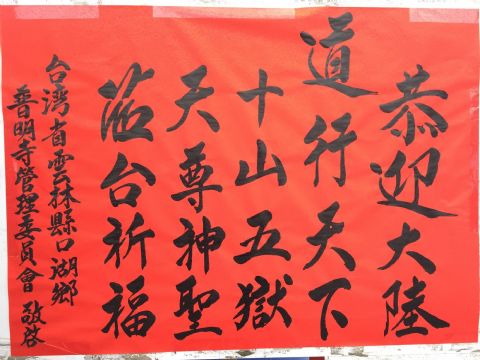 恭迎大陸
道行天下
十山五獄
天尊神聖
蒞台祈福
台灣省雲林縣口湖鄉
普明寺管理委員會 敬啓